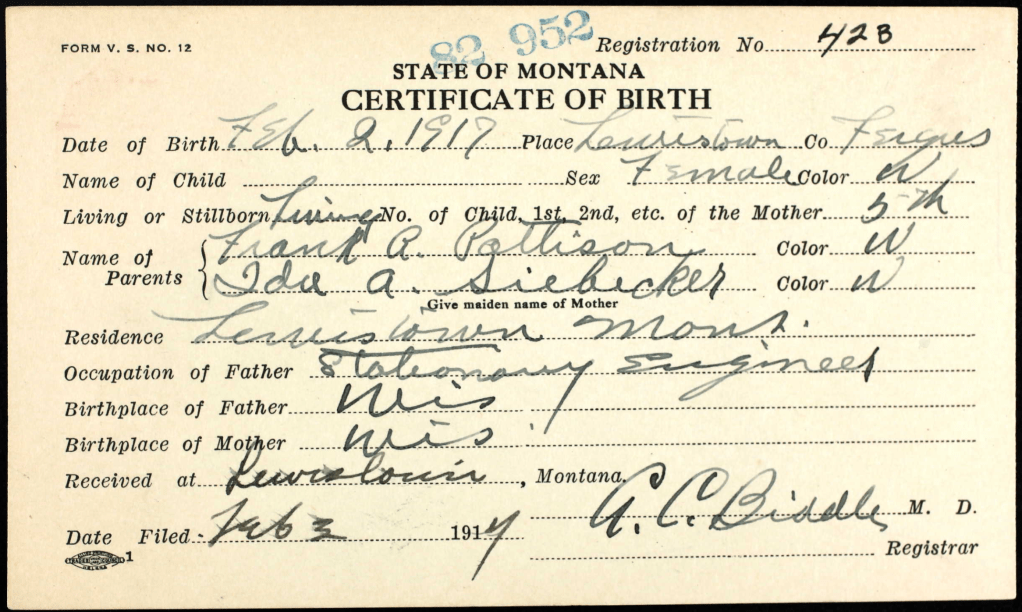 FORM V. S. NO. 12
82 952
Registration No. 423
STATE OF MONTANA
CERTIFICATE OF BIRTH
Date of Birth Feb. 2, 1917 Place Lewistown Co Fergus
Name of Child Sex Female Color W
Living or Stillborn Living No. of Child, 1st, 2nd, etc. of the Mother 5th
Name of Parents { Frank A. Pattison Color W
Ida A. Siebecker Color W
Give maiden name of Mother
Residence Lewistown Mont.
Occupation of Father Stationary Engineer
Birthplace of Father Wis
Birthplace of Mother Wis
Received at Lewistown, Montana.
A. C. Biddle M. D.
Date Filed Feb 3 1917
Registrar
1